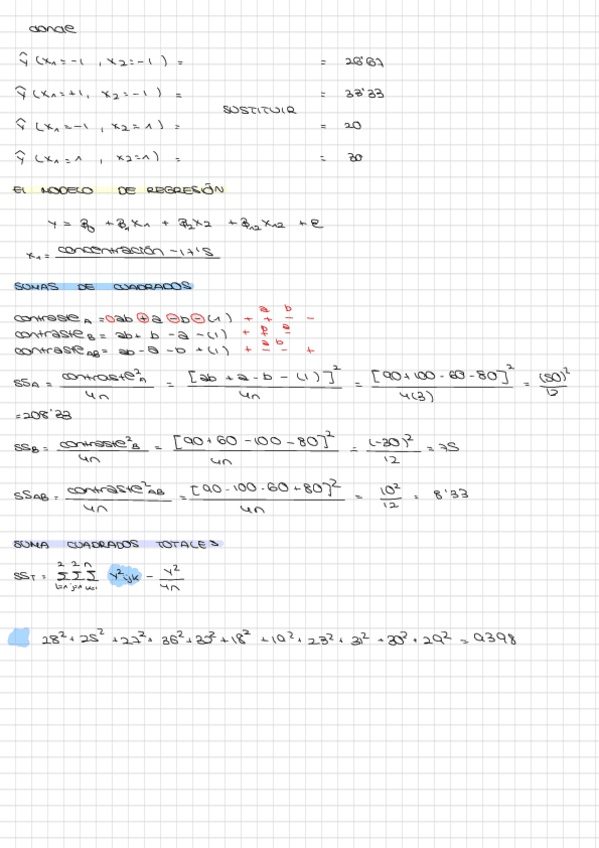 donde
ŷ (x₁=-1 , x₂=-1) = = 26'67
ŷ (x₁=+1, x₂=-1) = = 33'33
SUSTITUIR
ŷ (x₁=-1 , x₂=1) = = 20
ŷ (x₁=1 , x₂=1) = = 30
El MODELO DE REGRESIÓN
y = β₀ + β₁x₁ + β₂x₂ + β₁₂x₁₂ + e
x₁ = concentración - 1+'5
SUMAS DE CUADRADOS
a b
contraste A = ab + a - b - (1) + + - -
contraste B = ab + b - a - (1)
contraste AB = ab - a - b + (1) + - - +
SSA = contraste²A / 4n = [ab + a - b - (1)]² / 4n = [90+100-60-80]² / 4(3) = (50)² / 12
= 208'33
SSB = contraste²B / 4n = [90+60-100-80]² / 4n = (-30)² / 12 = 75
SSAB = contraste²AB / 4n = [90-100-60+80]² / 4n = 10² / 12 = 8'33
SUMA CUADRADOS TOTALES
2 2 n
SST = Σ Σ Σ y²ijk - y² / 4n
28² + 25² + 27² + 36² + 32² + 18² + 19² + 23² + 31² + 30² + 29² = 9398